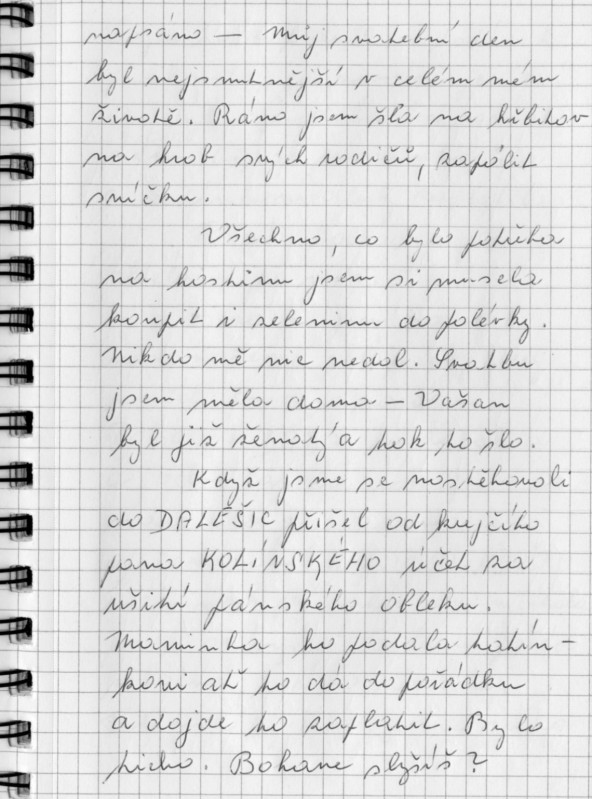 napsáno — Můj svatební den
byl nejsmutnější v celém mém
životě. Ráno jsem šla na hřbitov
na hrob svých rodičů, zapálit
svíčku.
Všechno, co bylo potřeba
na hostinu jsem si musela
koupit i zeleninu do polévky.
Nikdo mě nic nedal. Svatbu
jsem měla doma — Vašan
byl již ženatý a tak to šlo.
Když jsme se nastěhovali
do DALEŠIC přišel od krejčího
pana KOLÍNSKÉHO účet za
ušití pánského obleku.
Maminka ho podala tatín-
kovi ať to dá do pořádku
a dojde ho zaplatit. Bylo
ticho. Bohane slyšíš?